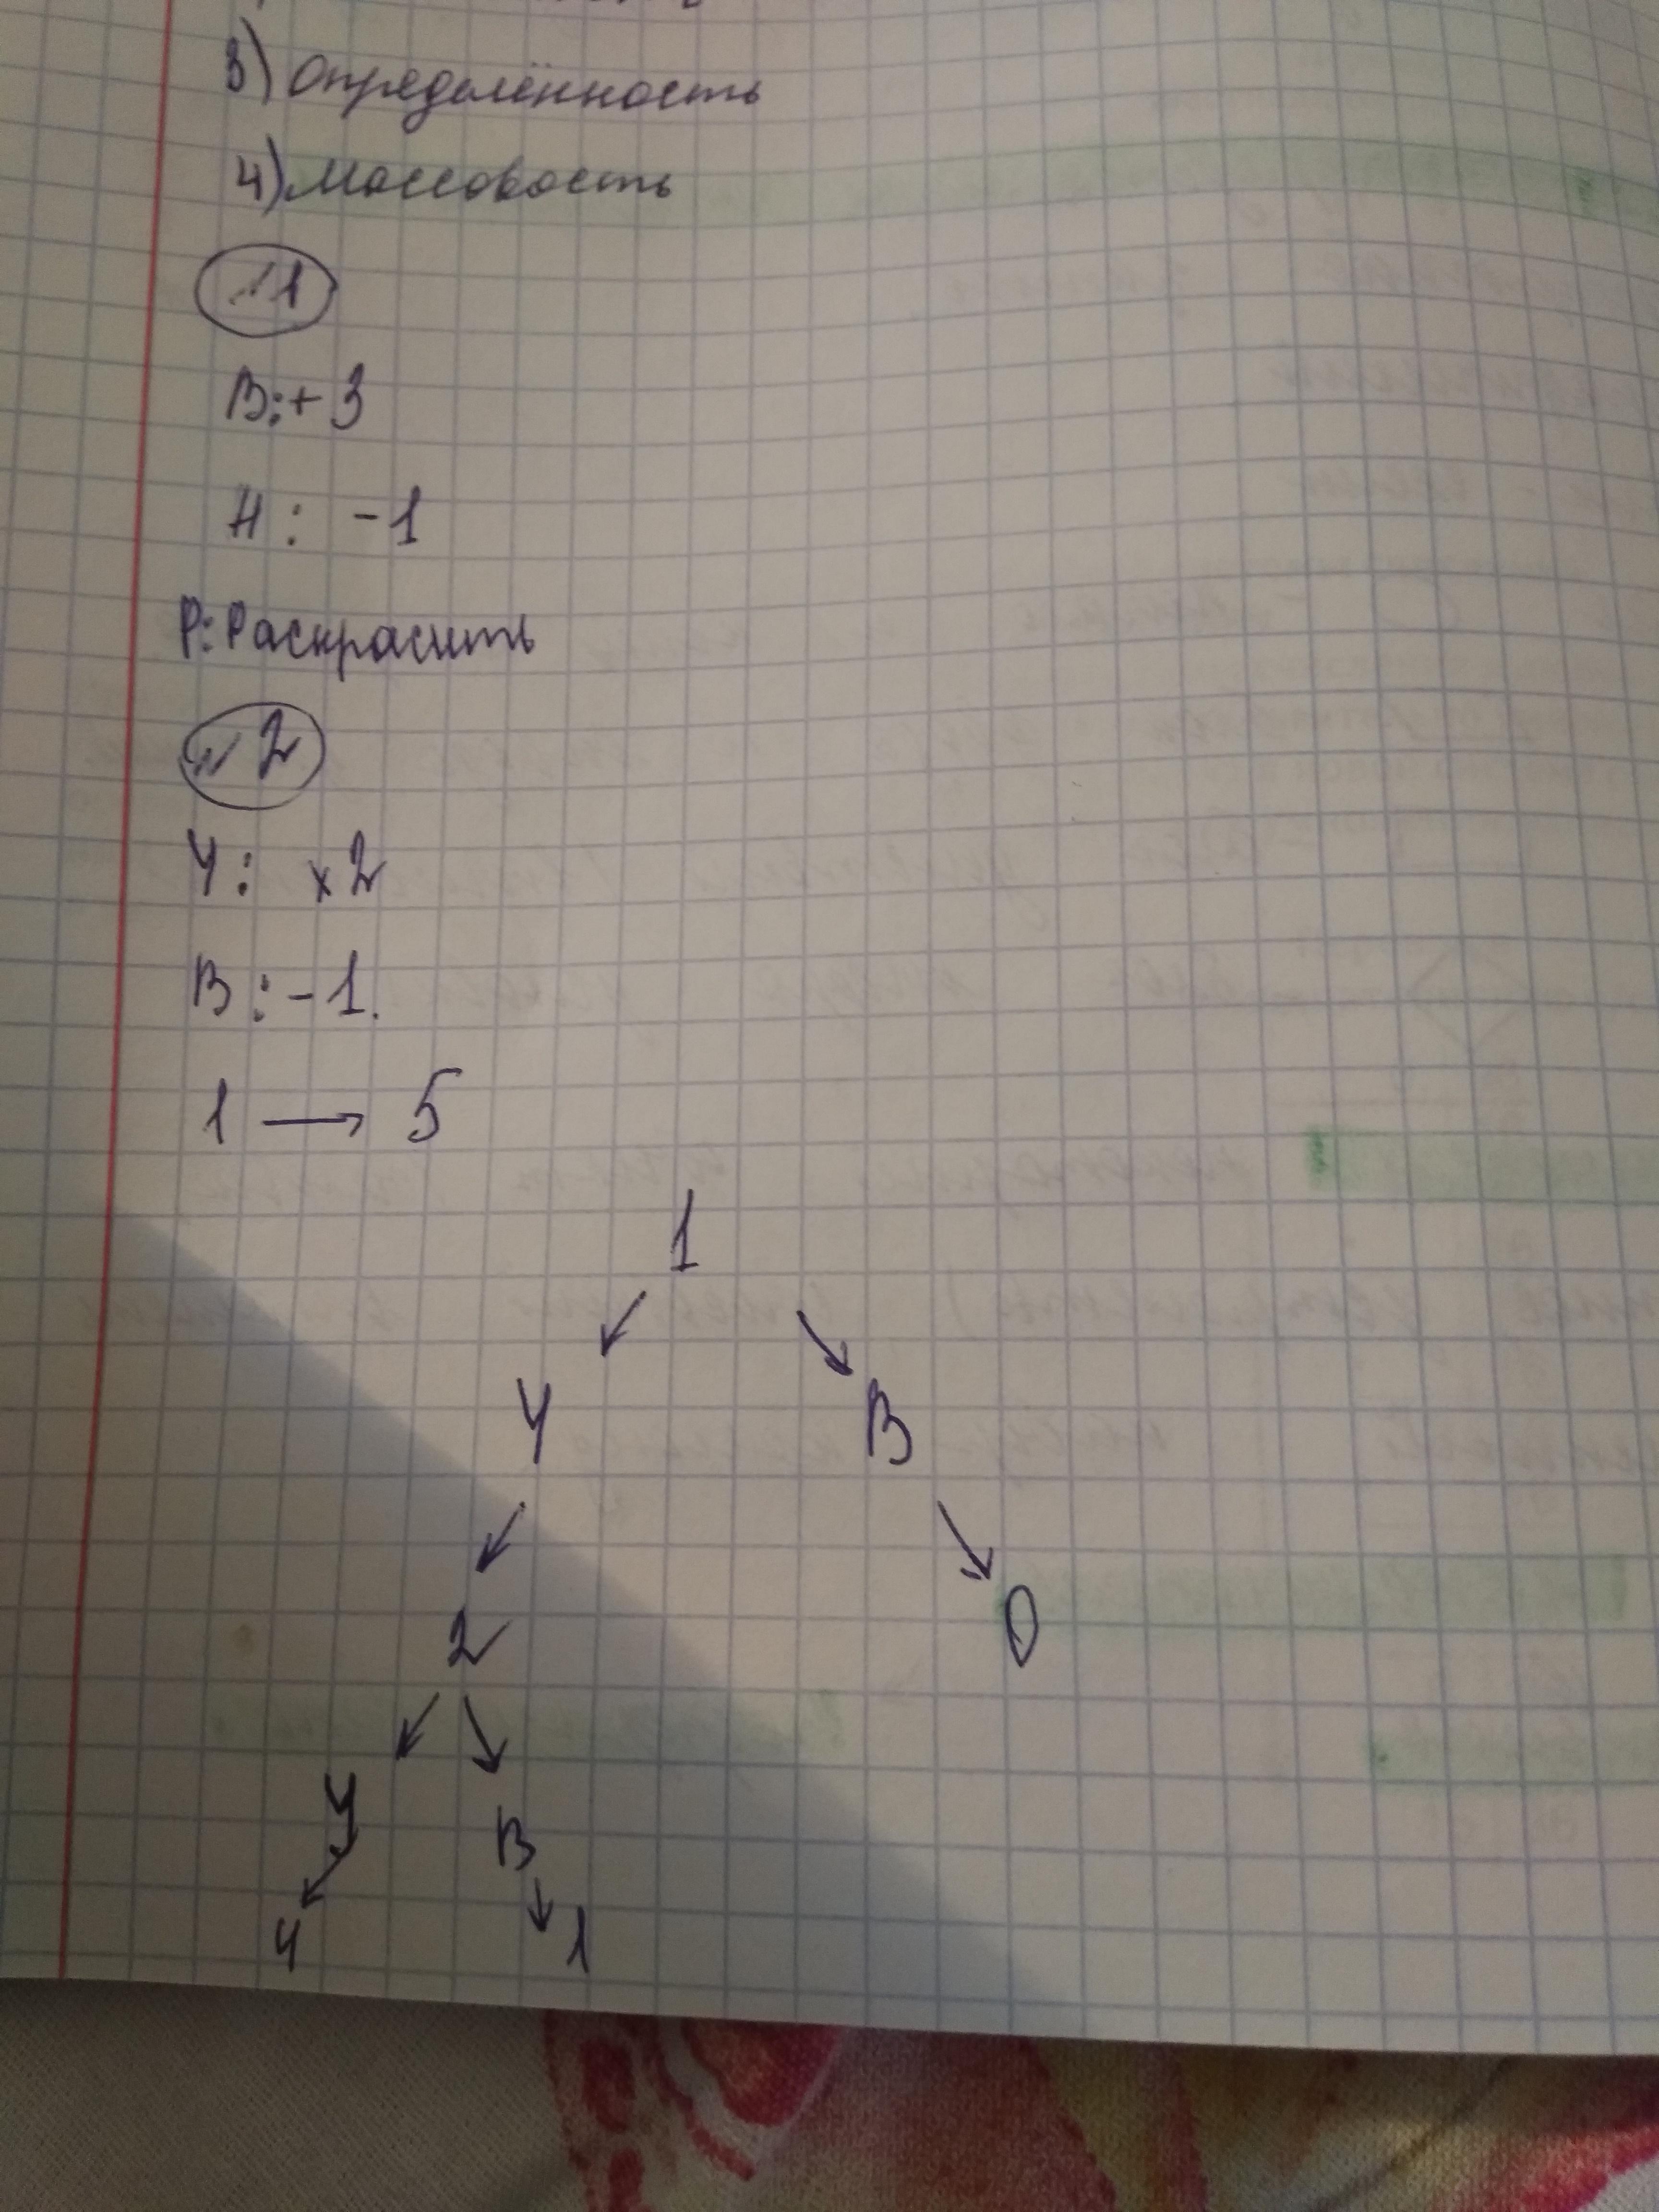 3) Определённость
4) Массовость
№1
В:+3
Н: -1
Р: Раскрасить
№2
У: x2
В: -1.
1 → 5
1
У В
2 0
У В
4 1